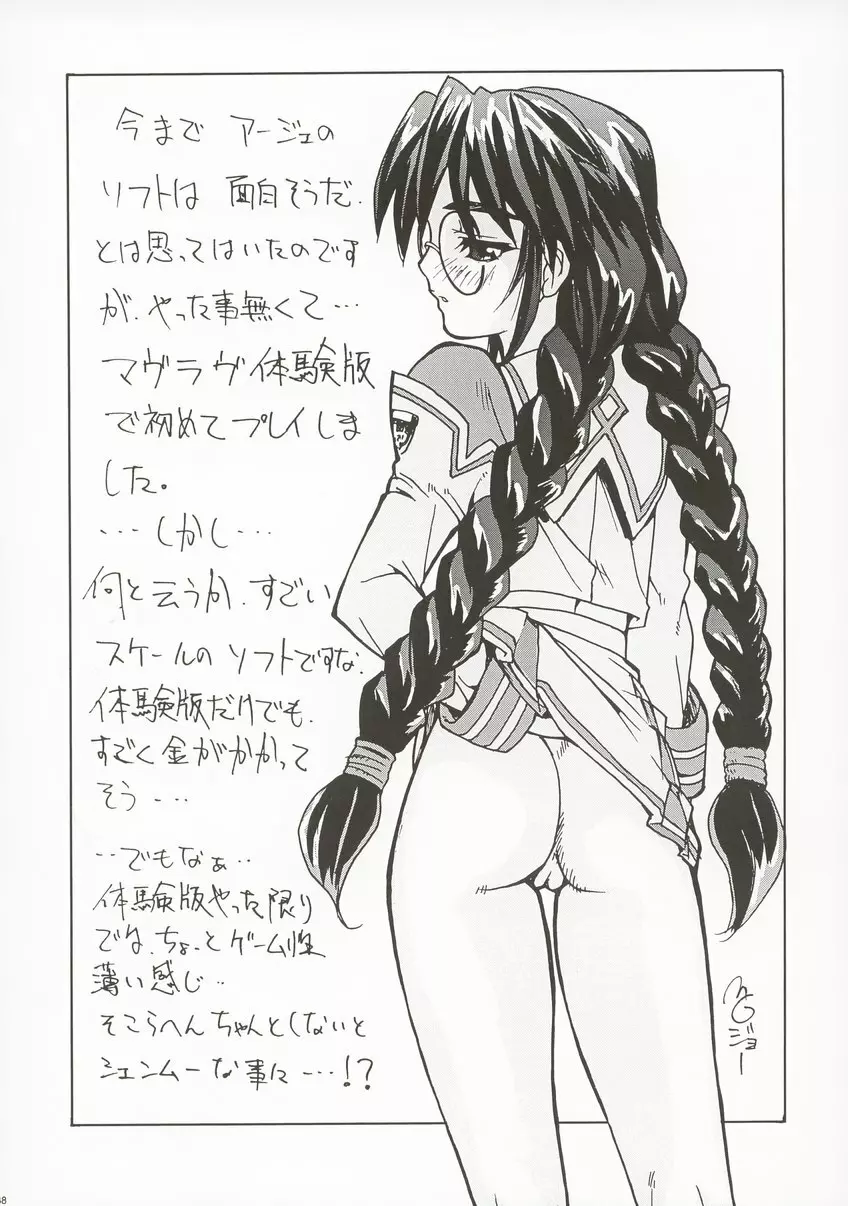 今まで アージュの
ソフトは 面白そうだ.
とは思ってはいたのです
が.やった事無くて…
マヴラヴ体験版
で初めてプレイしま
した。
…しかし…
何と云うか.すごい
スケールの ソフトですな.
体験版だけでも.
すごく金がかかって
そう…
‥でもなぁ‥
体験版やった限り
でね.ちょっとゲーム性
薄い感じ‥
そこらへんちゃんとしないと
シェンムーな事に…!?
ジョー